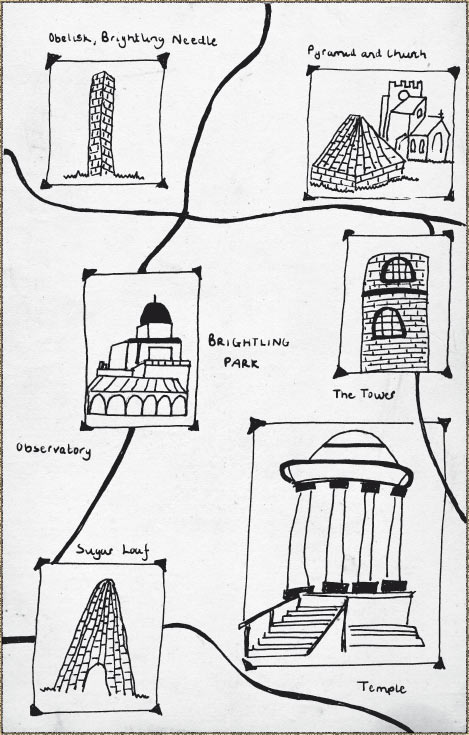 Obelisk, Brightling Needle
Pyramid and Church
BRIGHTLING
PARK
The Tower
Observatory
Sugar Loaf
Temple